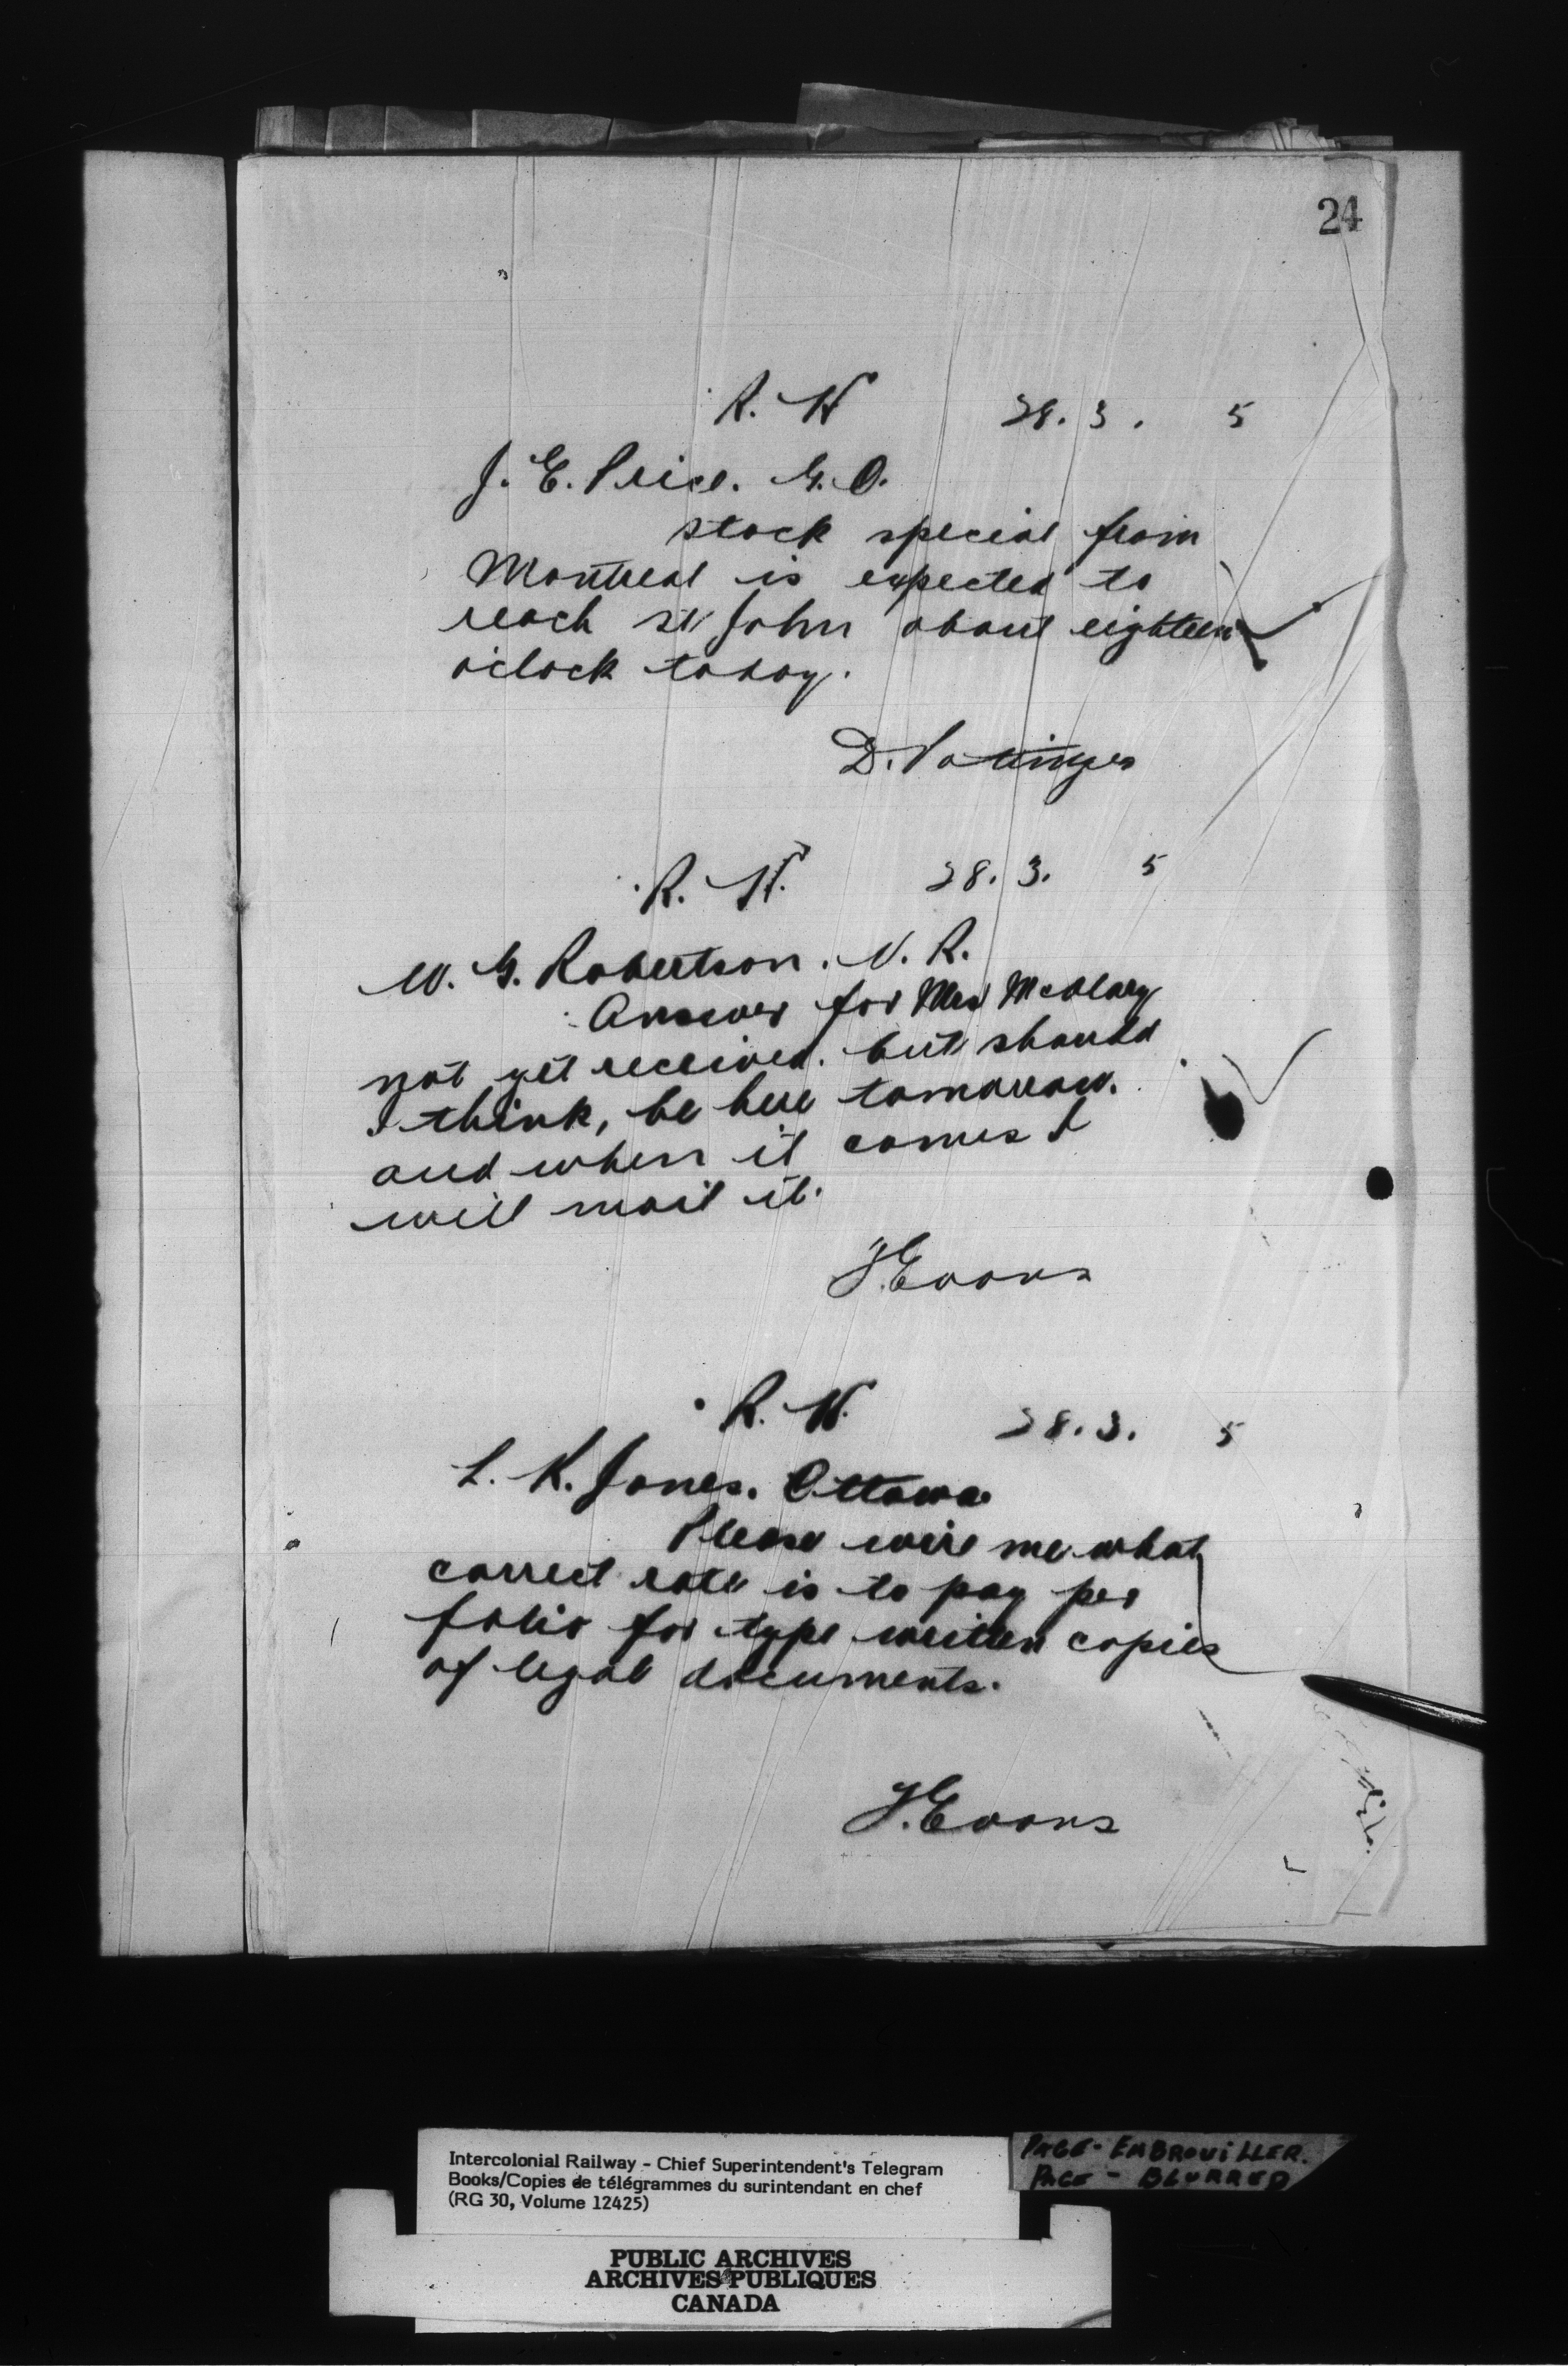 24
R. H 28. 3. 5
J. E. Price. G. O.
Stock special from
Montreal is expected to
reach St John about eighteen
o'clock today.
D. Pottinger
R. H. 28. 3. 5
W. G. Robertson. N. R.
Answer for Mrs
not yet received. but should
I think, be here tomorrow.
and when it comes I
will mail it.
J. Evans
R. H. 28. 3. 5
L. K. Jones. Ottawa
Please wire me what
correct rate is to pay per
folio for type written copies
of legal documents.
J. Evans
Intercolonial Railway - Chief Superintendent's Telegram
Books/Copies de télégrammes du surintendant en chef
(RG 30, Volume 12425)
PAGE - EMBROUILLER.
PAGE - BLURRED
PUBLIC ARCHIVES
ARCHIVES PUBLIQUES
CANADA